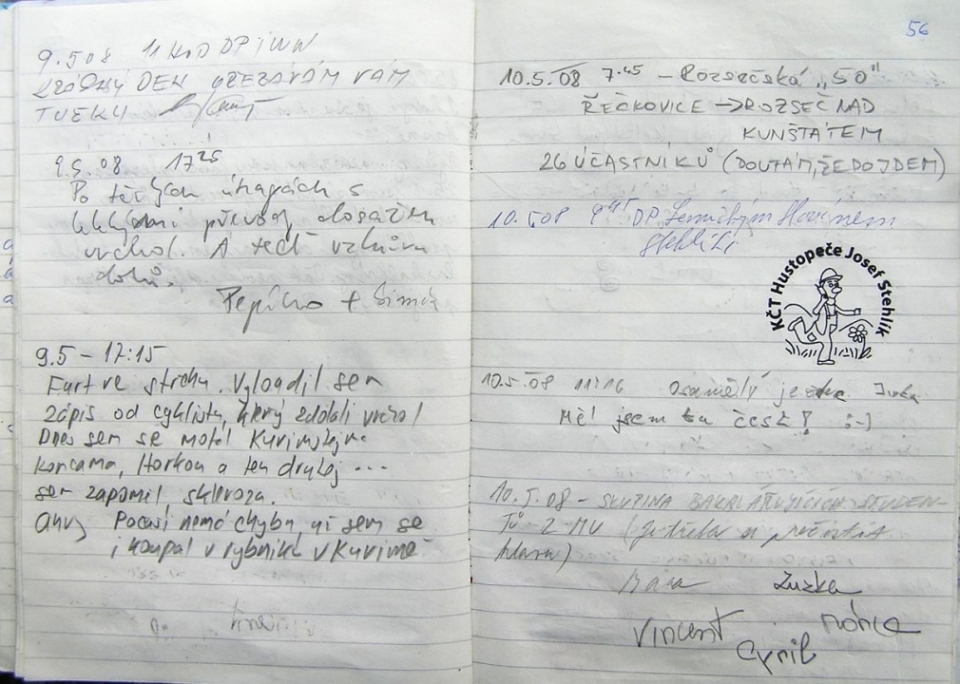 9.5 08 11 HOD DP
KRÁSNÝ DEN PŘEZDÁVÁM VÁM
9.5.08 17 25
Po těžkých útrapách s
dosažen
vrchol. A teď vzhůru
dolů.
Pepíno + Simča
9.5 - 17:15
Furt ve střehu. Vyloudil sem
zápis od cyklistů, který zdolali vrchol
Dnes sem se motal Kuřimskejma
koncama, Horkou a ten druhej ...
sem zapoměl skleroza.
Ahoj Počasí nemá chybu už sem se
i koupal v rybníku v Kuřimě
56
10.5.08 7:45 - Rozsečská „50"
ŘEČKOVICE → ROZSEČ NAD
KUNŠTÁTEM
26 ÚČASTNÍKŮ (DOUFÁM, ŽE DOJDEM)
10.5 08 DP
Stehlík
KČT Hustopeče Josef Stehlík
10.5.08 11:16 Osamělý jezdec Jirka
Měl jsem tu čest! :-)
10.5.08 - SKUPINA BAKALÁŘUJÍCÍCH STUDEN-
TŮ Z MU (je třeba si pročistit
hlavu)
Bára Zuzka
Vincent Mónča
Cyril